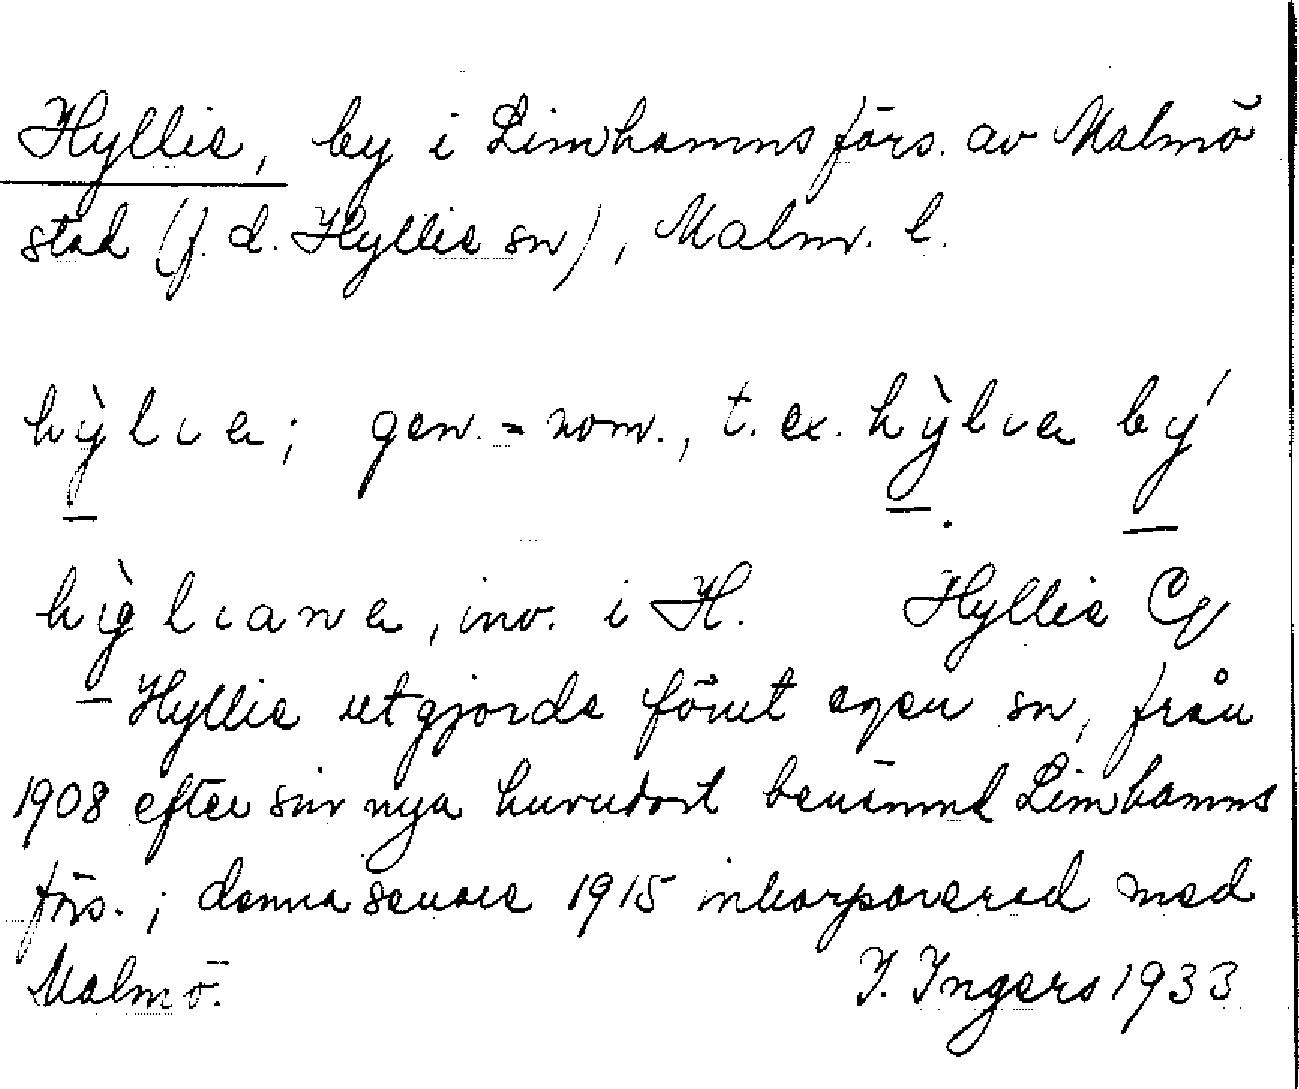 Hyllie, by i Limhamns förs. av Malmö
stad (f. d. Hyllie sn), Malm. l.
hỳlıa; gen. = nom., t. ex. hỳlıa bý
hỳlıana, inv. i H. Hyllie Cq
Hyllie utgjorde förut egen sn, från
1908 efter sin nya huvudort benämnd Limhamns
förs.; denna senare 1915 inkorporerad med
Malmö. I. Ingers 1933